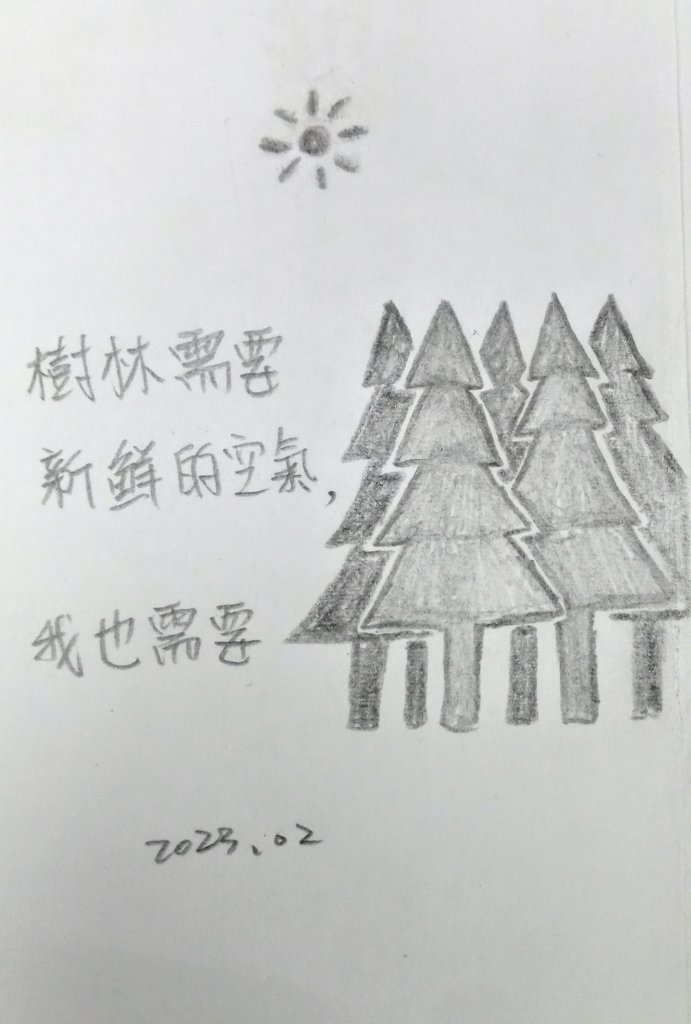 樹林需要
新鮮的空氣,
我也需要
2025.02